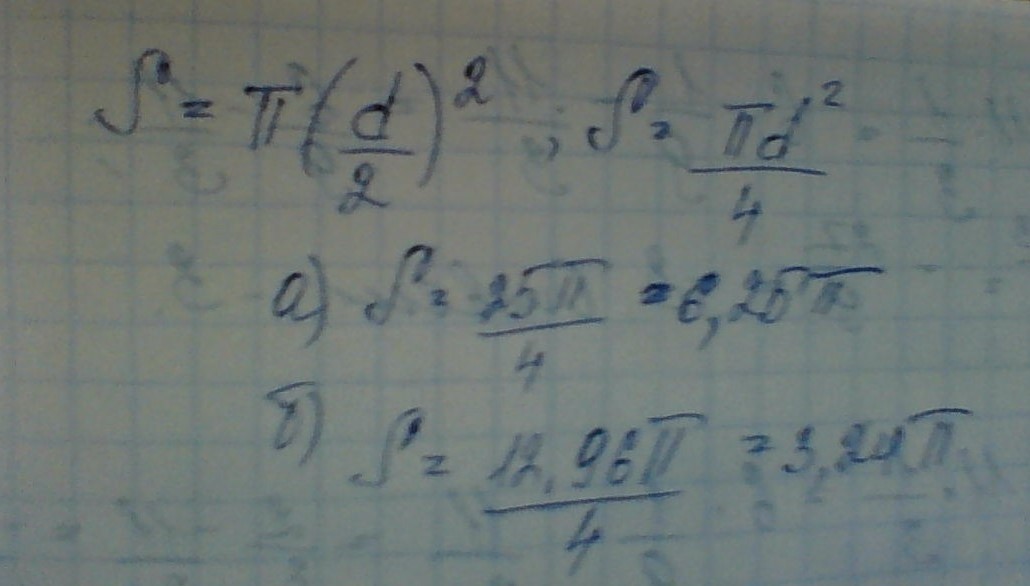 S = π(d/2)², S = πd²/4
а) S = 25π/4 = 6,25π
б) S = 12,96π/4 = 3,24π